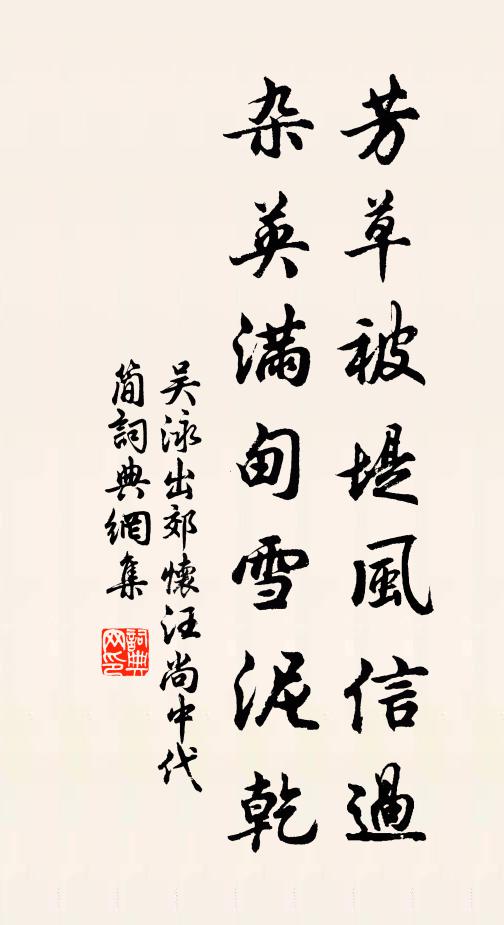 芳草被堤風信過
杂英满甸雪泥乾
吴泳出郊懷汪尚中代
简詞典網集
詞典
网印